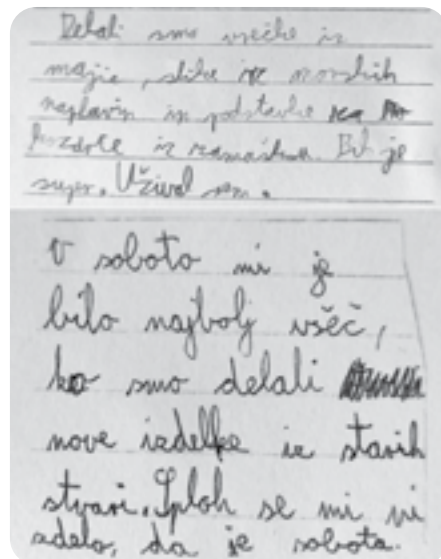 Delali smo vrečke iz
majic, slike iz morskih
naplavin in podstavke za
kozarce iz zamaškov. Bil je
super. Užival sem.
V soboto mi je
bilo najbolj všeč,
ko smo delali
nove izdelke iz starih
stvari. Sploh se mi ni
zdelo, da je sobota.